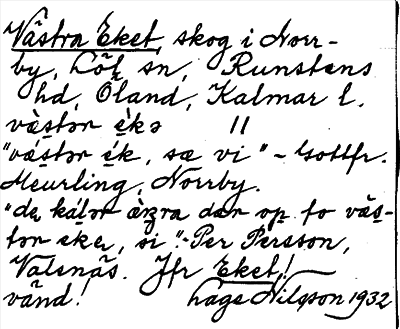 Västra Eket, skog i Norr-
by, Löt sn, Runstens
hd, Öland, Kalmar l.
væ̀stər é̱kə 11
"væ̀stər é̱k, sæ vi" - Gottfr.
Meurling, Norrby.
"de kálər àṉra dær o̱p fo væ̀s-
tər éker, si". - Per Persson,
Valsnäs. Jfr Eket!
vänd! Lage Nilsson 1932